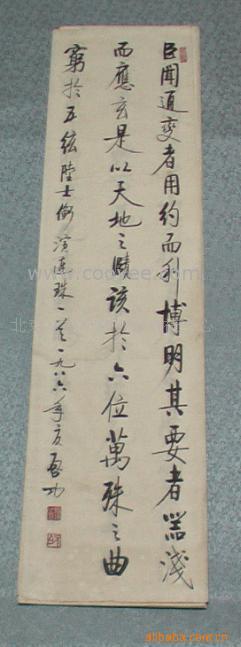 臣聞通變者用約而利博明其要者器淺
而應玄是以天地之賾該於六位萬殊之曲
窮於五絃陸士衡演連珠一首一九八六年夏啟功
alibaba.com.cn